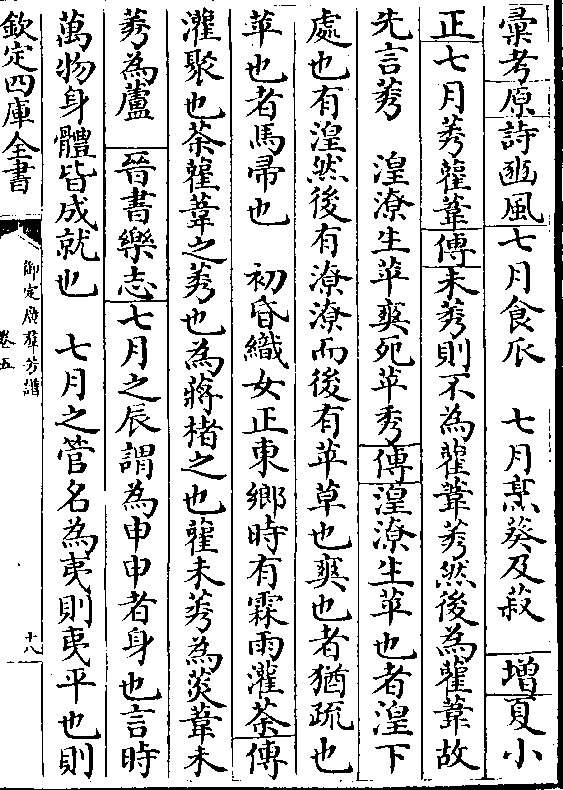 彚考原詩豳風七月食瓜　七月烹葵及菽　增夏小
正七月莠雚葦傳未莠則不為雚葦莠然後為雚葦故
先言莠　湟潦生苹爽死苹秀傳湟潦生苹也者湟下
處也有湟然後有潦潦而後有苹草也爽也者猶疏也
苹也者馬帚也　初昏織女正東鄉時有霖雨灌荼傳
灌聚也荼雚葦之莠也為蔣楮之也雚未莠為菼葦未
莠為蘆　晉書樂志七月之辰謂為申申者身也言時
萬物身體皆成就也　七月之管名為夷則夷平也則
欽定四庫全書
御定廣羣芳譜
卷五
十八